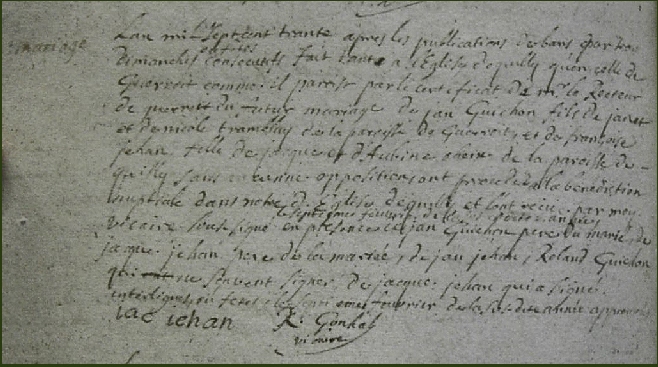 mariage
Lan mil Sept cent trante apres les publications de bans par trois
dimanches consecutifs et festes fait tante a l'Eglise de quilly qu'en celle de
Guerroit comme il paroist par le certificat de mr le Recteur
de du futur mariage de jan Guichon fils de janet
et de nicole de la paroisse de Guerroit, et de françoise
jehan fille de jacque et d'Aubine de la paroisse de
quilly sans aucunne opposition ont la bénédiction
nuptiale dans notre d. Eglise de quilly et lont par moy
le septieme fevrier de la
vicaire soussigné en presence de jan Guichon pere du marié, de
jacque jehan pere de la mariée, de jan jehan, Roland Guichon
qui ne sçavent signer, de jacque jehan qui a signé
fevrier de la susditte année approuvé
iac iehan R. Gonhal
vicaire